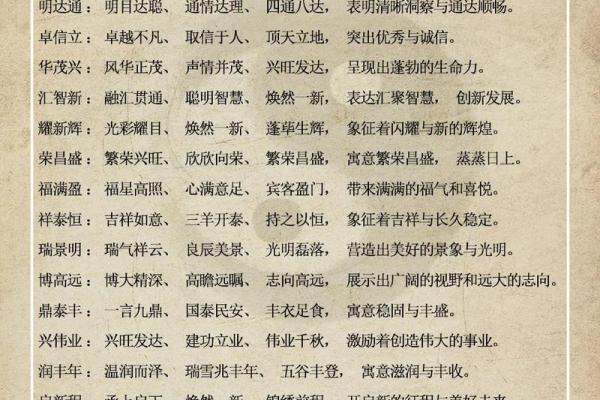 明达通：明目达聪、通情达理、四通八达，表明清晰洞察与通达顺畅。
卓信立：卓越不凡、取信于人、顶天立地，突出优秀与诚信。
华茂兴：风华正茂、声情并茂、兴旺发达，呈现出蓬勃的生命力。
汇智新：融汇贯通、聪明智慧、焕然一新，表达汇聚智慧，创新发展。
耀新辉：光彩耀目、焕然一新、蓬荜生辉，象征着闪耀与新的辉煌。
荣昌盛：繁荣兴旺、欣欣向荣、繁荣昌盛，寓意繁荣昌盛，蒸蒸日上。
福满盈：福星高照、心满意足、宾客盈门，带来满满的福气和喜悦。
祥泰恒：吉祥如意、三羊开泰、持之以恒，象征着吉祥与长久稳定。
瑞景明：瑞气祥云、良辰美景、光明磊落，营造出美好的景象与光明。
博高远：博大精深、高瞻远瞩、志向高远，展示出广阔的视野和远大的志向。
鼎泰丰：一言九鼎、国泰民安、丰衣足食，寓意稳固与丰盛。
兴伟业：兴旺发达、建功立业、伟业千秋，激励着创造伟大的事业。
润丰年：温润而泽、瑞雪兆丰年、五谷丰登，寓意滋润与丰收。
启新程：承上启下、焕然一新、锦绣前程，开启新的征程与美好未来。